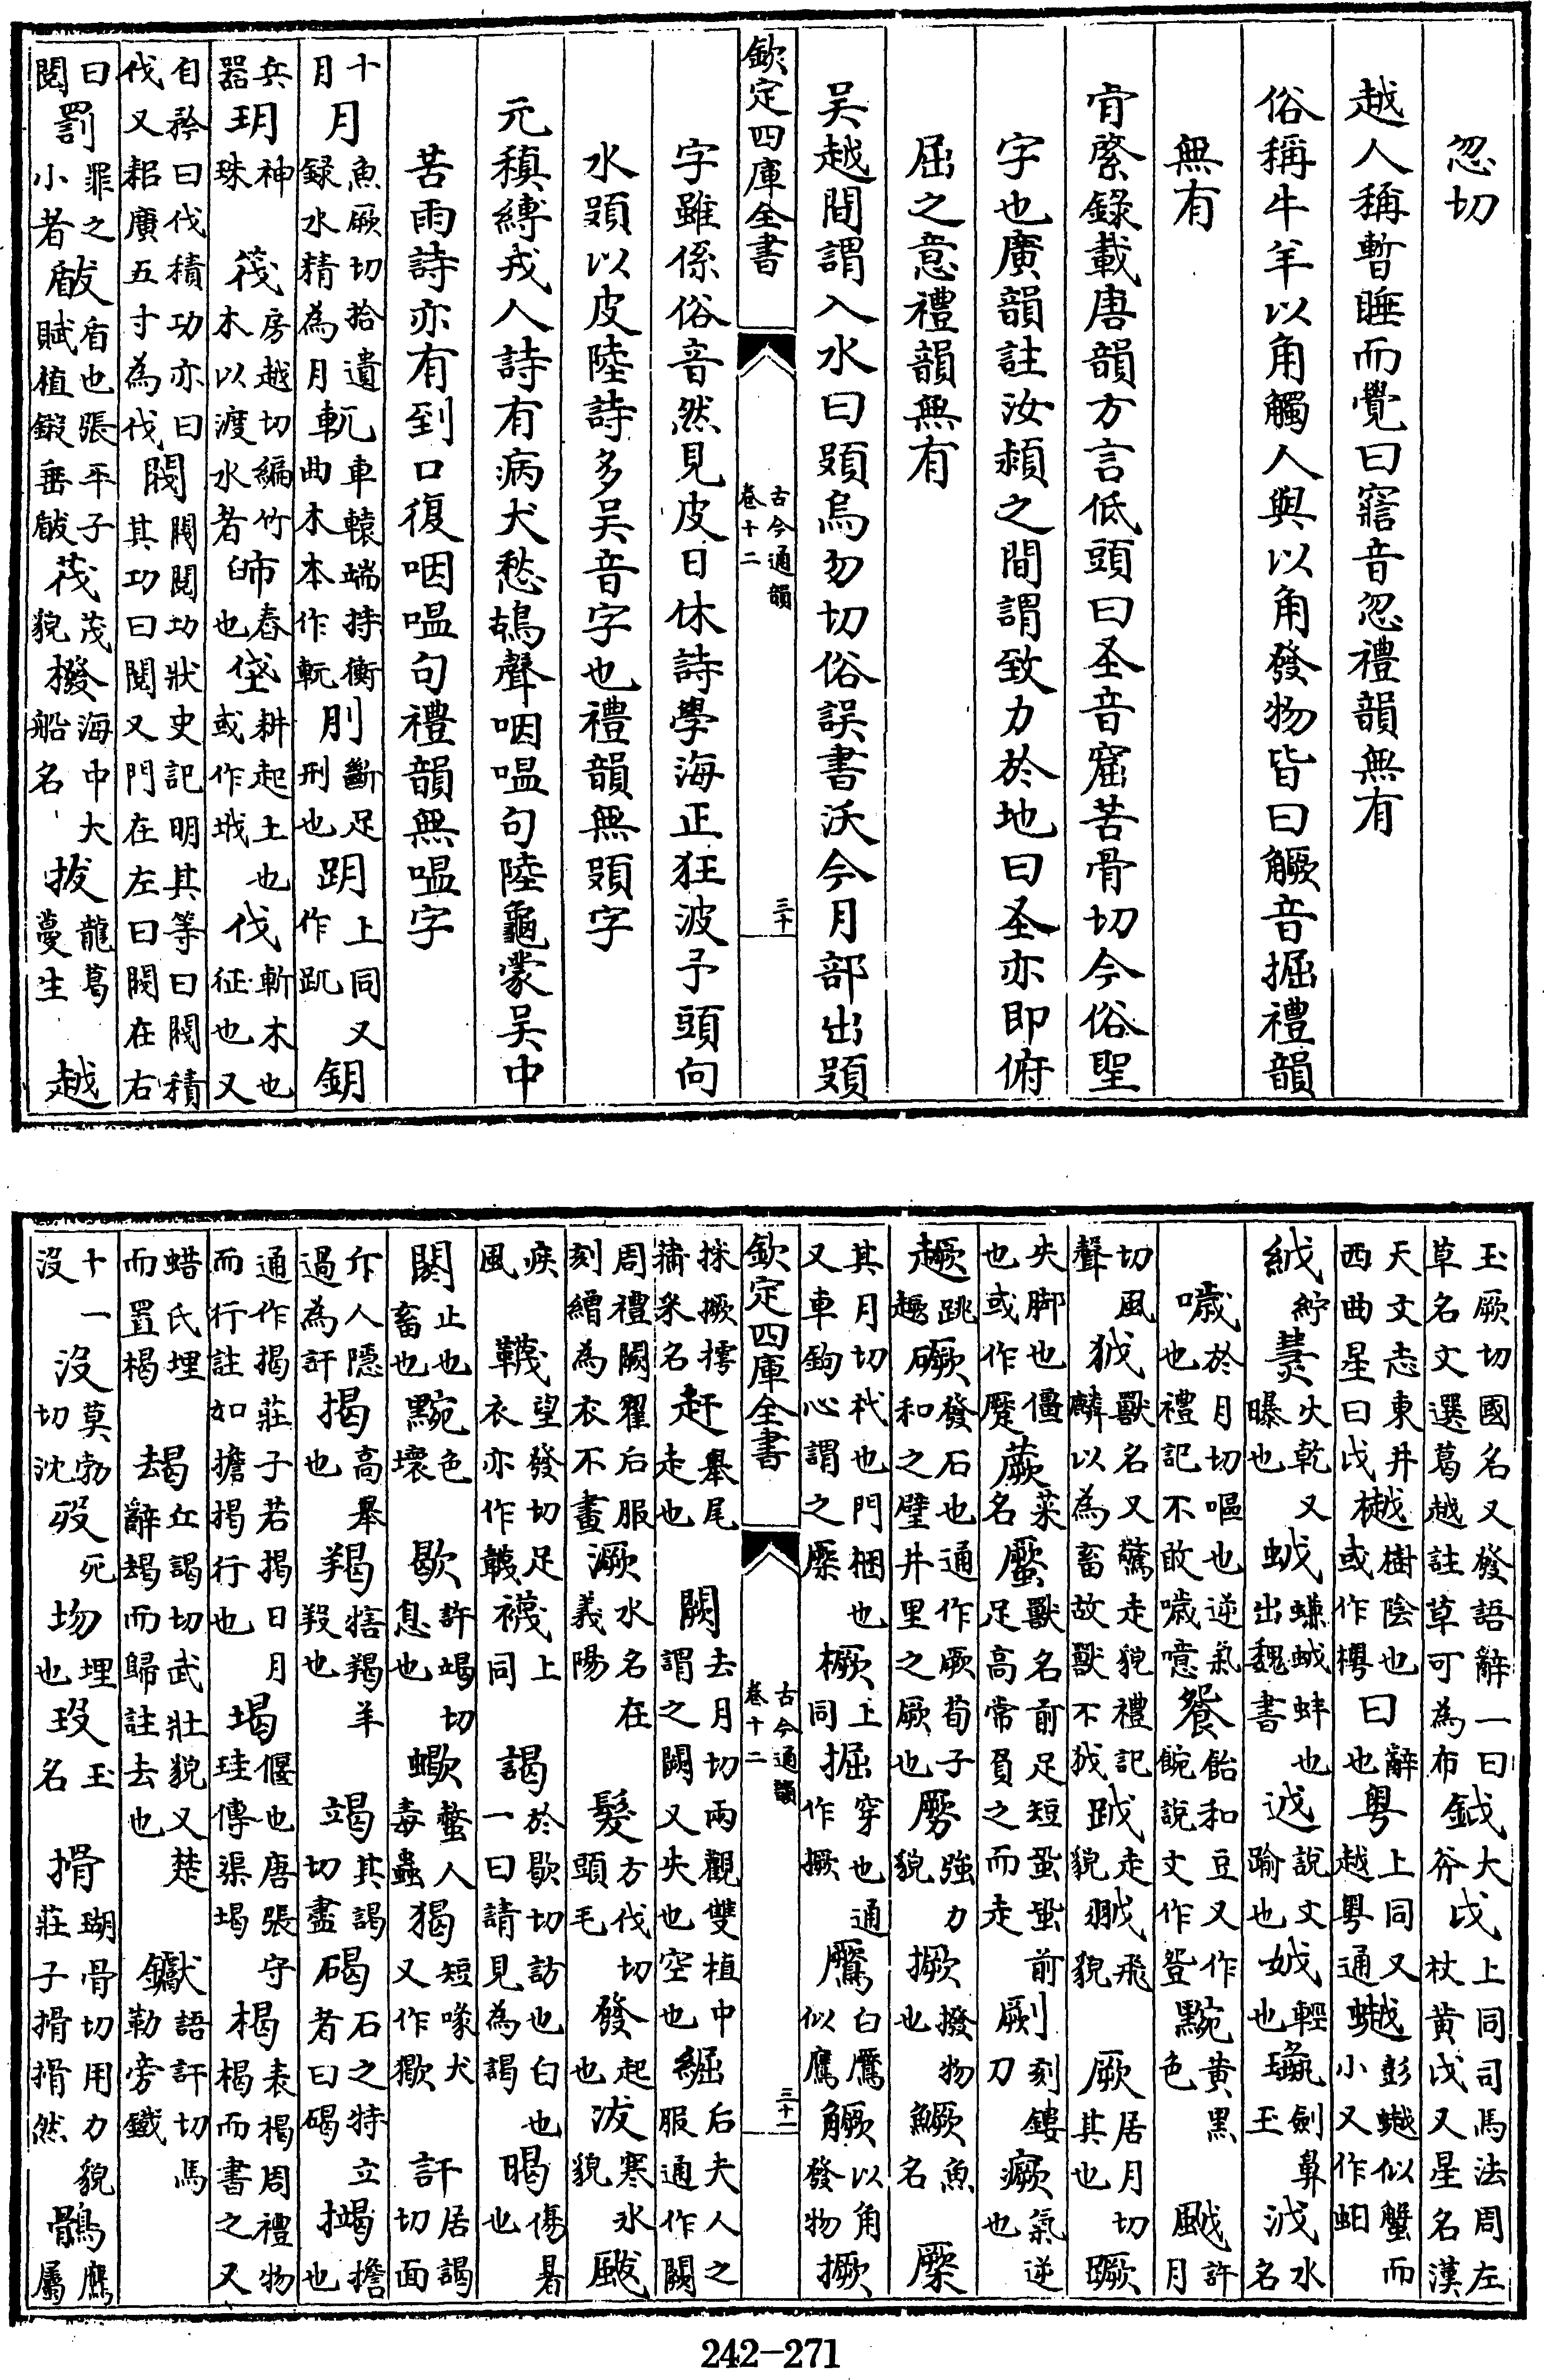 忽切
越人稱暫睡而覺曰䆿音忽禮韻無有
俗稱牛羊以角觸人與以角發物皆曰觼音掘禮韻
無有
肯綮錄載唐韻方言低頭曰圣音窟苦骨切今俗聖
字也廣韻註汝潁之間謂致力於地曰圣亦即俯
屈之意禮韻無有
吳越間謂入水曰頞烏勿切俗誤書沃今月部出頞
欽定四庫全書 古今通韻 卷十二 三十
字雖係俗音然見皮日休詩學海正狂波予頭向
水頞以皮陸詩多吳音字也禮韻無頞字
元稹縛戎人詩有病犬愁鴣聲咽嗢句陸龜蒙吳中
苦雨詩亦有到口復咽嗢句禮韻無嗢字
十月 月魚厥切拾遺錄水精為月 軏車轅端持衡曲木本作軏 刖斷足刑也 跀上同又作䟢 鈅
兵器 玥神珠 筏房越切編竹木以渡水者 𦥛舂也 垡耕起土也或作墢 伐斬木也征也又
自矜曰伐積功亦曰伐又耜廣五寸為伐 閥閥閱功狀史記明其等曰閥積其功曰閱又門在左曰閥在右
曰閱 罰罪之小者 瞂盾也張平子賦植鎩垂瞂 茷茂貌 橃海中大船名 拔蘢葛蔓生 越
玉厥切國名又發語辭一曰草名文選葛越註草可為布 鉞大斧 戉上同司馬法周左杖黃戉又星名漢
天文志東井西曲星曰戉 樾樹陰也或作樾 曰辭也 粵上同又越粵通 䗽彭䗽似蟹而小又作蚏
絾紵 㷪火乾又曝也 蛂蠊蛂蚌也出魏書 逑說文踰也 娍輕也 璏劍鼻玉 泧水名
噦於月切嘔也逆氣也禮記不敢噦噫 餐飴和豆又作䬧說文作豋 黦黃黑色 颰許月
切風聲 狘獸名又驚走貌禮記麟以為畜故獸不狘 跋走貌 翍飛貌 厥居月切其也 蹶
失脚也僵也或作蹷 蕨菜名 蟨獸名前足短蛩蛩前足高常負之而走 劂刻鏤刀 瘚氣逆也
趣跳趣 礮發石也通作厥荀子和之璧井里之厥也 劈強力貌 撅撥物也 鱖魚名 橜
其月切杙也門梱也又車鉤心謂之橜 橛上同 掘穿也通作撅 鷢白鷢似鷹 觼以角發物 撅
採撅撏蒱采名 赶舉尾走也 闕去月切兩觀雙植中謂之闕又失也空也 䘿后夫人之服通作闕
周禮闕翟后服刻繒為衣不畫 㵐水名在義陽 髮方伐切頭毛 發起也 泼寒冰貌 颰
疾風 韈望發切足衣亦作韤 襪上同 謁於歇切訪也白也一曰請見為謁 暍傷暑也
閼止也畜也 黦色壞 歇許竭切息也 蠍螫人毒蟲 猲短喙犬又作獥 訐居謁切面
斥人隱過為訐 揭高舉也 羯犗羯羊羖也 竭其謁切盡 碣石之特立者曰碣 揭擔也
通作揭莊子若揭日月而行註如擔揭行也 堨偃也唐張守珪傳渠堨 楬表楬周禮物楬而書之又
蜡氏埋而置楬 朅丘謁切武壯貌又楚辭朅而歸註去也 钀語訐切馬勒旁鐵
十一沒 沒莫勃切沈 歿死 圽埋也 玫玉名 搰瑚骨切用力貌莊子搰搰然 鶻鷹屬
欽定四庫全書 古今通韻 卷十二 三十一
242-271